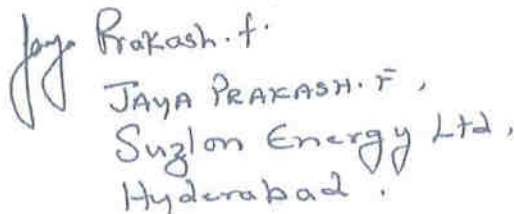 Jaya Prakash.f.
JAYA PRAKASH. F,
Suzlon Energy Ltd,
Hyderabad.